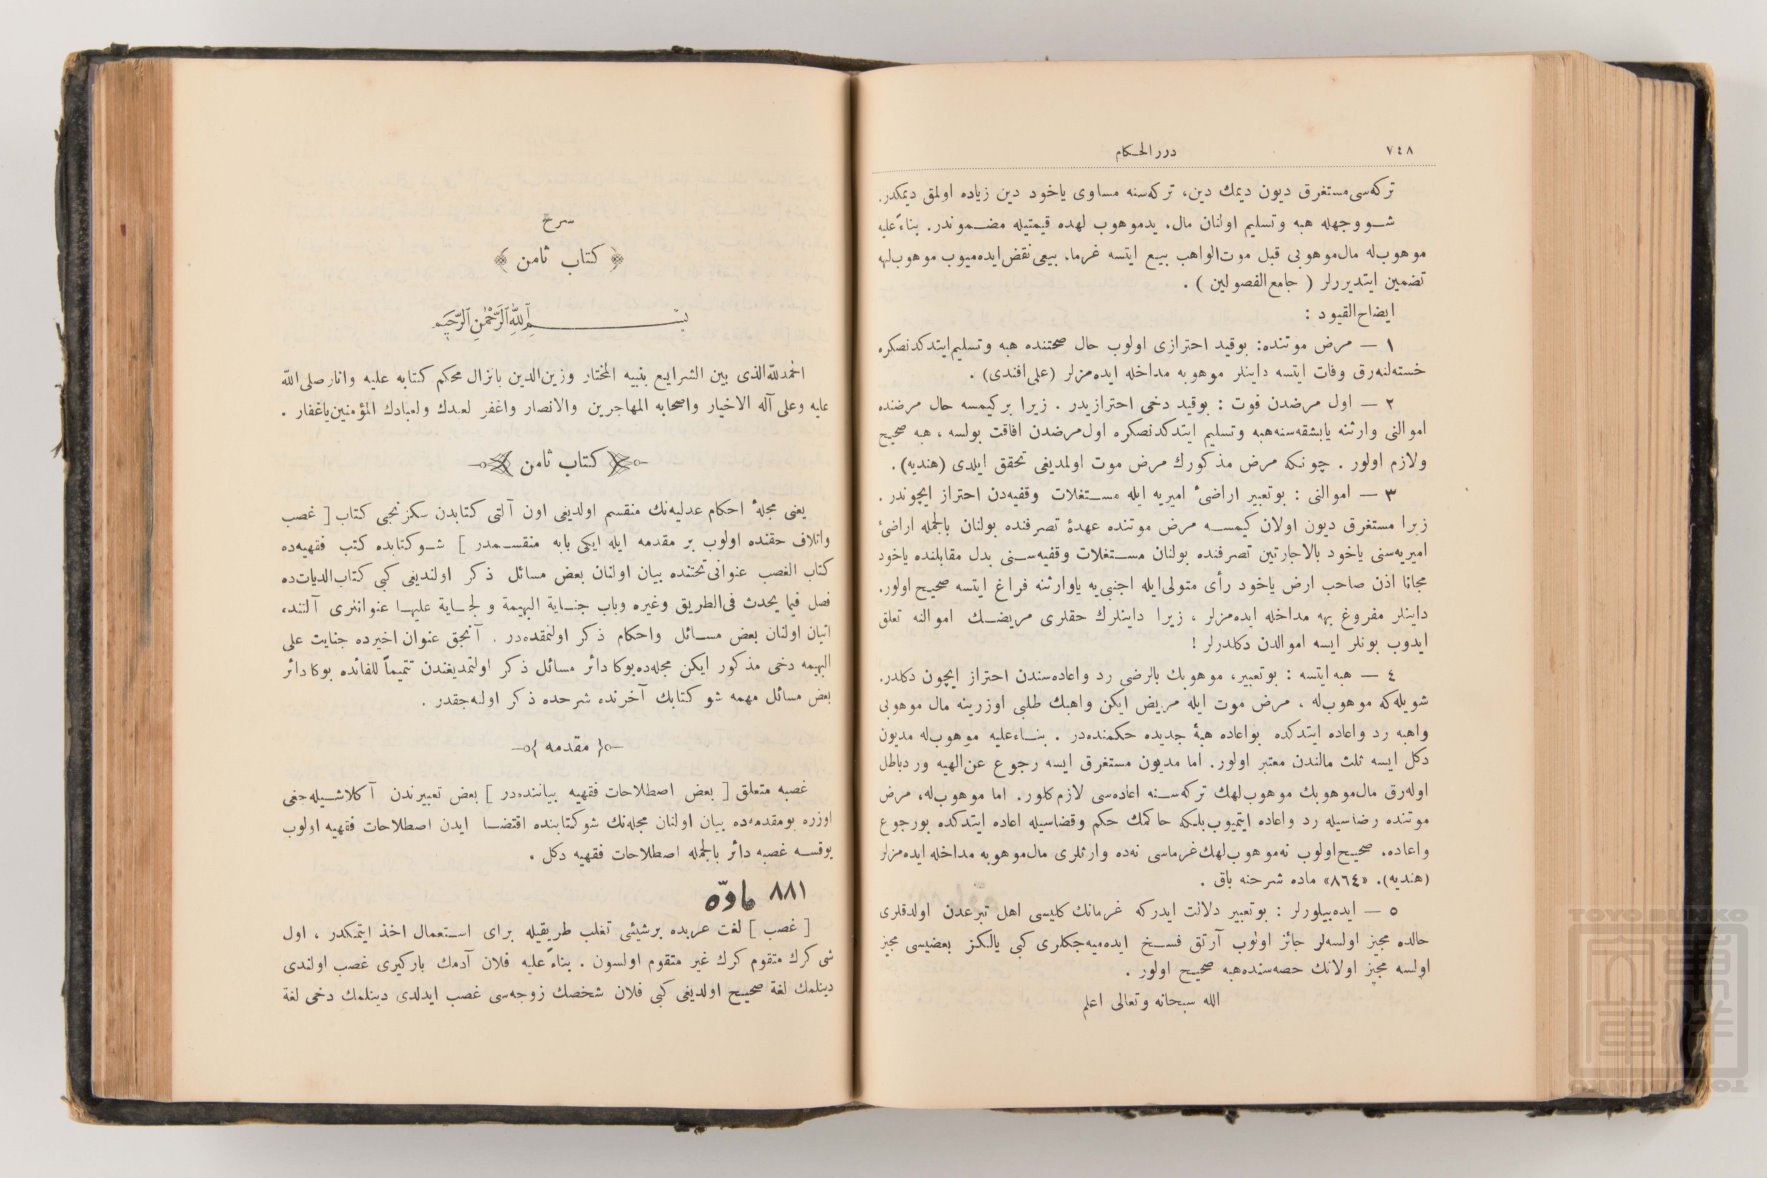 ٧٤٨
درر الحكام
تركه‌سى مستغرق ديون ديمك دين، تركه‌سنه مساوى ياخود دين زياده اولمق ديمكدر.
شو وجهله هبه وتسليم اولنان مال، يد موهوب لهده قيمتيله مضموندر. بناءً عليه
موهوب‌له مال موهوبى قبل موت الواهب بيع ايتسه غرما، بيعى نقض ايده‌ميوب موهوب‌لهه
تضمين ايتديررلر ( جامع الفصولين ) .
ايضاح القيود :
١ — مرض موتنده: بوقيد احترازى اولوب حال صحتنده هبه وتسليم ايتدكدنصكره
خسته‌لنه‌رق وفات ايتسه داينلر موهوبه مداخله ايده‌مزلر (على افندى) .
٢ — اول مرضدن فوت : بوقيد دخى احترازيدر . زيرا بر كيمسه حال مرضنده
اموالنى وارثنه يا بشقه‌سنه هبه وتسليم ايتدكدنصكره اول مرضدن افاقت بولسه ، هبه صحيح
ولازم اولور . چونكه مرض مذكورك مرض موت اولمديغى تحقق ايلدى (هنديه) .
٣ — اموالنى : بوتعبير اراضىٔ اميريه ايله مستغلات وقفيه‌دن احتراز ايچوندر .
زيرا مستغرق ديون اولان كيمسه مرض موتنده عهدهٔ تصرفنده بولنان بالجمله اراضىٔ
اميريه‌سنى ياخود بالاجارتين تصرفنده بولنان مستغلات وقفيه‌سنى بدل مقابلنده ياخود
مجانا اذن صاحب ارض ياخود رأى متولى ايله اجنبى‌يه ياوارثنه فراغ ايتسه صحيح اولور.
داينلر مفروغ بهه مداخله ايده‌مزلر ، زيرا داينلرك حقلرى مريضك اموالنه تعلق
ايدوب بونلر ايسه اموالدن دكلدرلر !
٤ — هبه ايتسه : بوتعبير، موهوبك بالرضى رد واعاده‌سندن احتراز ايچون دكلدر.
شويله‌كه موهوب‌له ، مرض موت ايله مريض ايكن واهبك طلبى اوزرينه مال موهوبى
واهبه رد واعاده ايتدكده بواعاده هبهٔ جديده حكمنده‌در . بناءعليه موهوب‌له مديون
دكل ايسه ثلث مالندن معتبر اولور. اما مديون مستغرق ايسه رجوع عن الهبه و رد باطل
اوله‌رق مال موهوبك موهوب لهك تركه‌سنه اعاده‌سى لازم كلور. اما موهوب‌له، مرض
موتنده رضاسيله رد واعاده ايتميوب بلكه حاكمك حكم وقضاسيله اعاده ايتدكده بورجوع
واعاده، صحيح اولوب نه موهوب لهك غرماسى نه‌ده وارثلرى مال موهوبه مداخله ايده‌مزلر
(هنديه). «٨٦٤» ماده شرحنه باق .
٥ — ايده‌بيلورلر : بوتعبير دلالت ايدركه غرمانك كليسى اهل تبرعدن اولدقلرى
حالده مجيز اولسه‌لر جائز اولوب آرتق فسخ ايده‌ميه‌جكلرى كبى يالكز بعضيسى مجيز
اولسه مجيز اولانك حصه‌سنده هبه صحيح اولور .
الله سبحانه وتعالى اعلم
شرح
﴿ كتاب ثامن ﴾
بسم الله الرحمن الرحيم
الحمد لله الذى بين الشرايع بنبيه المختار وزين الدين بانزال محكم كتابه عليه وانار صلى الله
عليه وعلى آله الاخيار واصحابه المهاجرين والانصار واغفر لعبدك ولعبادك المؤمنين ياغفار .
كتاب ثامن
يعنى مجلهٔ احكام عدليه‌نك منقسم اولديغى اون آلتى كتابدن سكزنجى كتاب [ غصب
واتلاف حقنده اولوب بر مقدمه ايله ايكى بابه منقسمدر ] شو كتابده كتب فقهيه‌ده
كتاب الغصب عنوانى تحتنده بيان اولنان بعض مسائل ذكر اولنديغى كبى كتاب الديات‌ده
فصل فيما يحدث فى الطريق وغيره وباب جناية البهيمة والجناية عليها عنوانلرى آلتنده
اتيان اولنان بعض مسائل واحكام ذكر اولنمقده‌در . آنجق عنوان اخيرده جنايت على
البهيمه دخى مذكور ايكن مجله‌ده بوكا دائر مسائل ذكر اولنمديغندن تتميماً للفائده بوكا دائر
بعض مسائل مهمه شو كتابك آخرنده شرحده ذكر اولنه‌جقدر .
مقدمه
غصبه متعلق [ بعض اصطلاحات فقهيه بياننده‌در ] بعض تعبيرندن آكلاشيله‌جغى
اوزره بومقدمه‌ده بيان اولنان مجله‌نك شو كتابنده اقتضا ايدن اصطلاحات فقهيه اولوب
يوقسه غصبه دائر بالجمله اصطلاحات فقهيه دكل .
٨٨١ مادّه
[ غصب ] لغت عربده برشيئى تغلب طريقيله براى استعمال اخذ ايتمكدر ، اول
شى كرك متقوم كرك غير متقوم اولسون . بناء عليه فلان آدمك باركيرى غصب اولندى
دينلمك لغة صحيح اولديغى كبى فلان شخصك زوجه‌سى غصب ايدلدى دينلمك دخى لغة
TOYO BUNKO